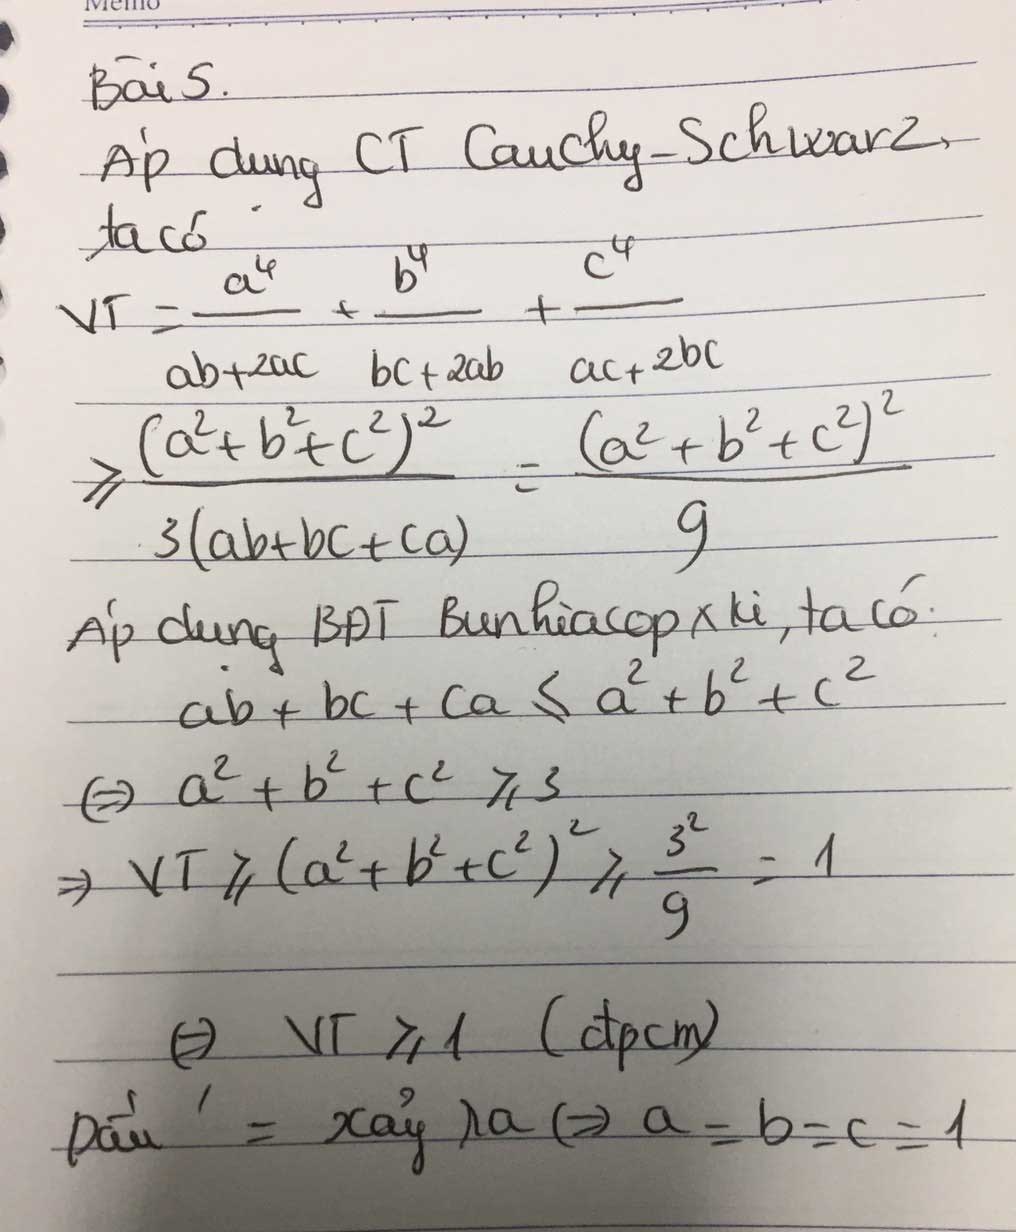 Memo
Bài 5.
Áp dụng CT Cauchy-Schwarz,
ta có
VT = a⁴/(ab+2ac) + b⁴/(bc+2ab) + c⁴/(ac+2bc)
≥ (a²+b²+c²)²/3(ab+bc+ca) = (a²+b²+c²)²/9
Áp dụng BĐT Bunhiacopxki, ta có:
ab + bc + ca ≤ a² + b² + c²
⇔ a² + b² + c² ≥ 3
⇒ VT ≥ (a²+b²+c²)² ≥ 3²/9 = 1
⇔ VT ≥ 1 (đpcm)
Dấu = xảy ra ⇔ a = b = c = 1